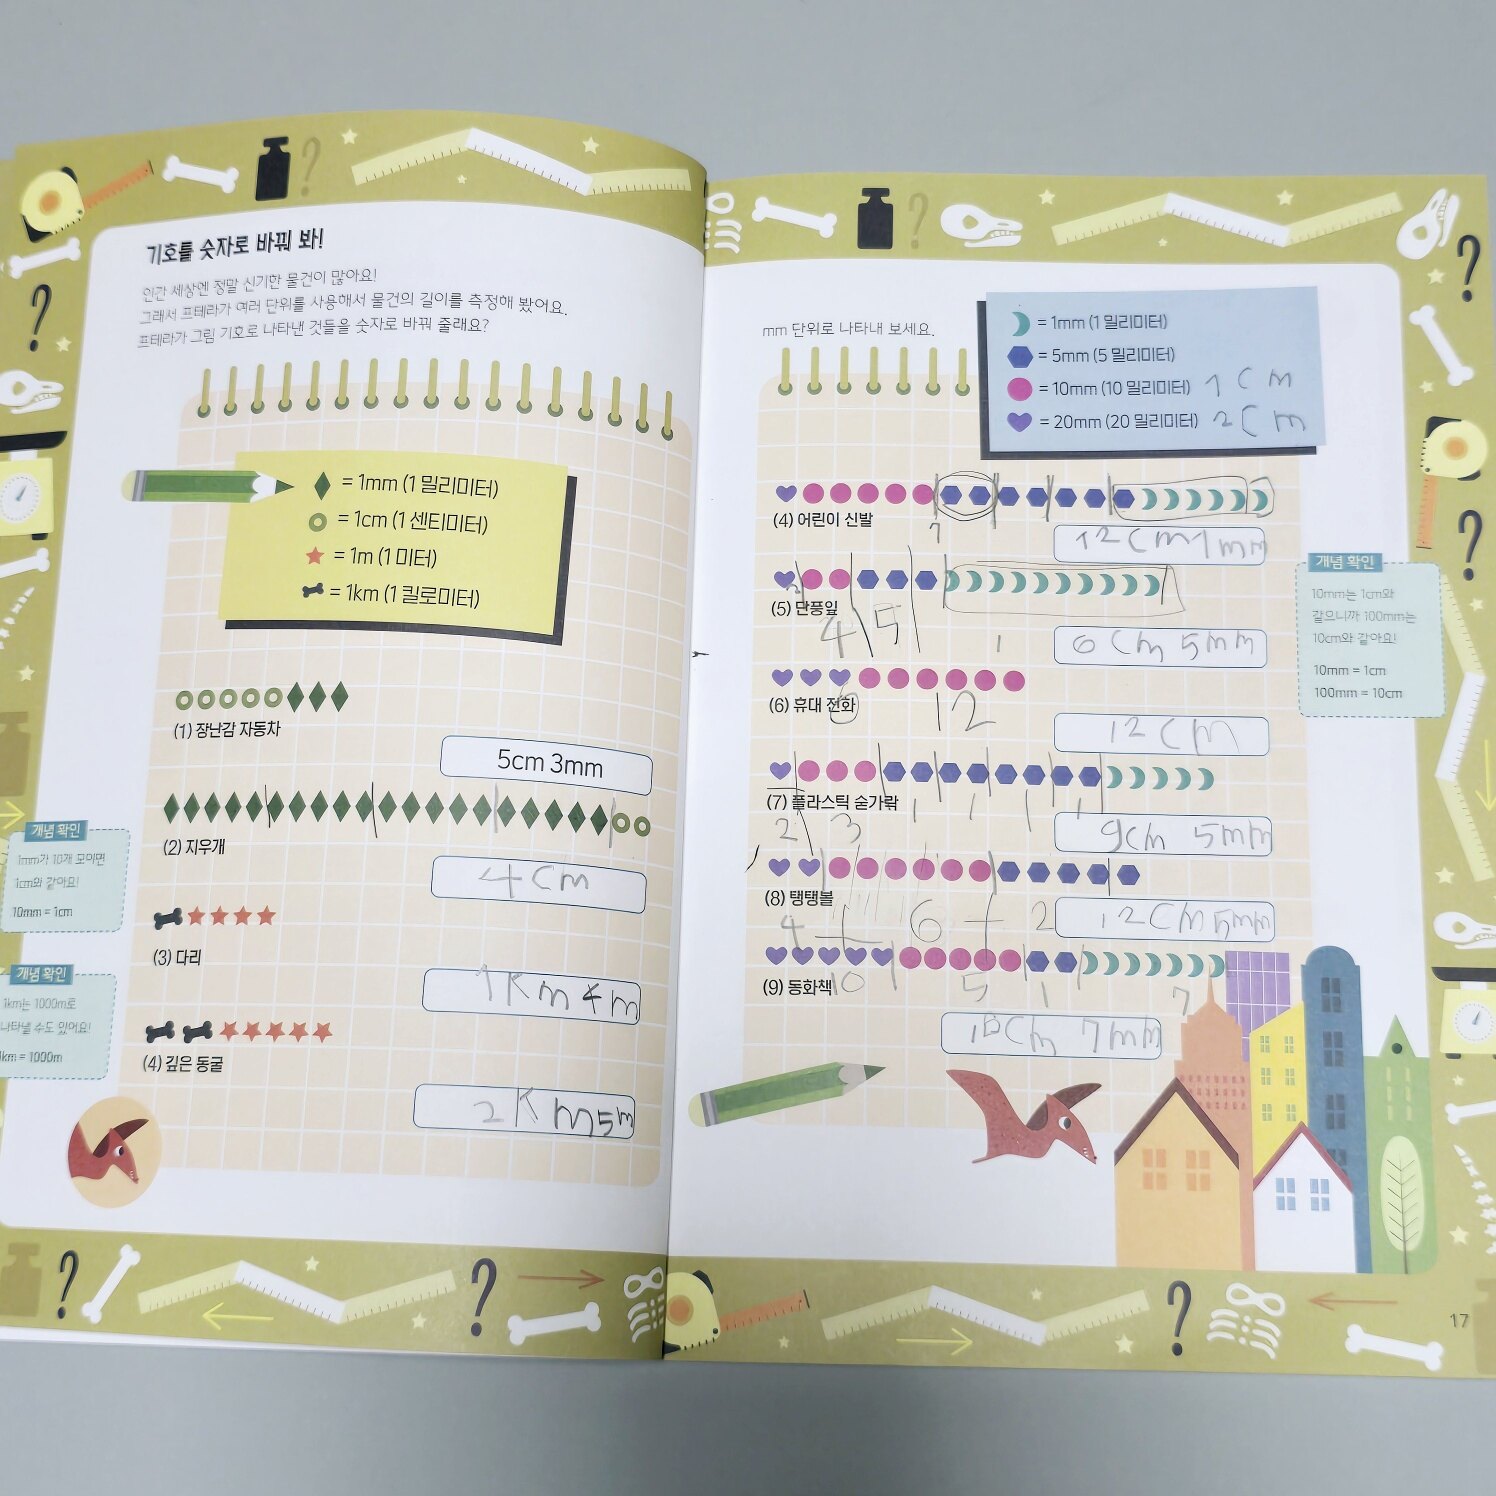 기호를 숫자로 바꿔 봐!
인간 세상엔 정말 신기한 물건이 많아요!
그래서 프테라가 여러 단위를 사용해서 물건의 길이를 측정해 봤어요.
프테라가 그림 기호로 나타낸 것들을 숫자로 바꿔 줄래요?
= 1mm (1 밀리미터)
= 1cm (1 센티미터)
= 1m (1 미터)
= 1km (1 킬로미터)
(1) 장난감 자동차
5cm 3mm
(2) 지우개
4cm
(3) 다리
1Km 4m
(4) 깊은 동굴
2Km5m
개념 확인
1mm가 10개 모이면
1cm와 같아요!
10mm = 1cm
개념 확인
1km는 1000m로
나타낼 수도 있어요!
1km = 1000m
mm 단위로 나타내 보세요.
= 1mm (1 밀리미터)
= 5mm (5 밀리미터)
= 10mm (10 밀리미터) 1Cm
= 20mm (20 밀리미터) 2Cm
(4) 어린이 신발
7
12Cm1mm
(5) 단풍잎
4 5 1
6Cm 5mm
(6) 휴대 전화
6 12
12CM
(7) 플라스틱 숟가락
2 3 1 1 1 1
9Cm 5mm
(8) 탱탱볼
4 + 6 + 2
12Cm5mm
(9) 동화책
10 5 1 7
Cm 7mm
개념 확인
10mm는 1cm와
같으니까 100mm는
10cm와 같아요!
10mm = 1cm
100mm = 10cm
17